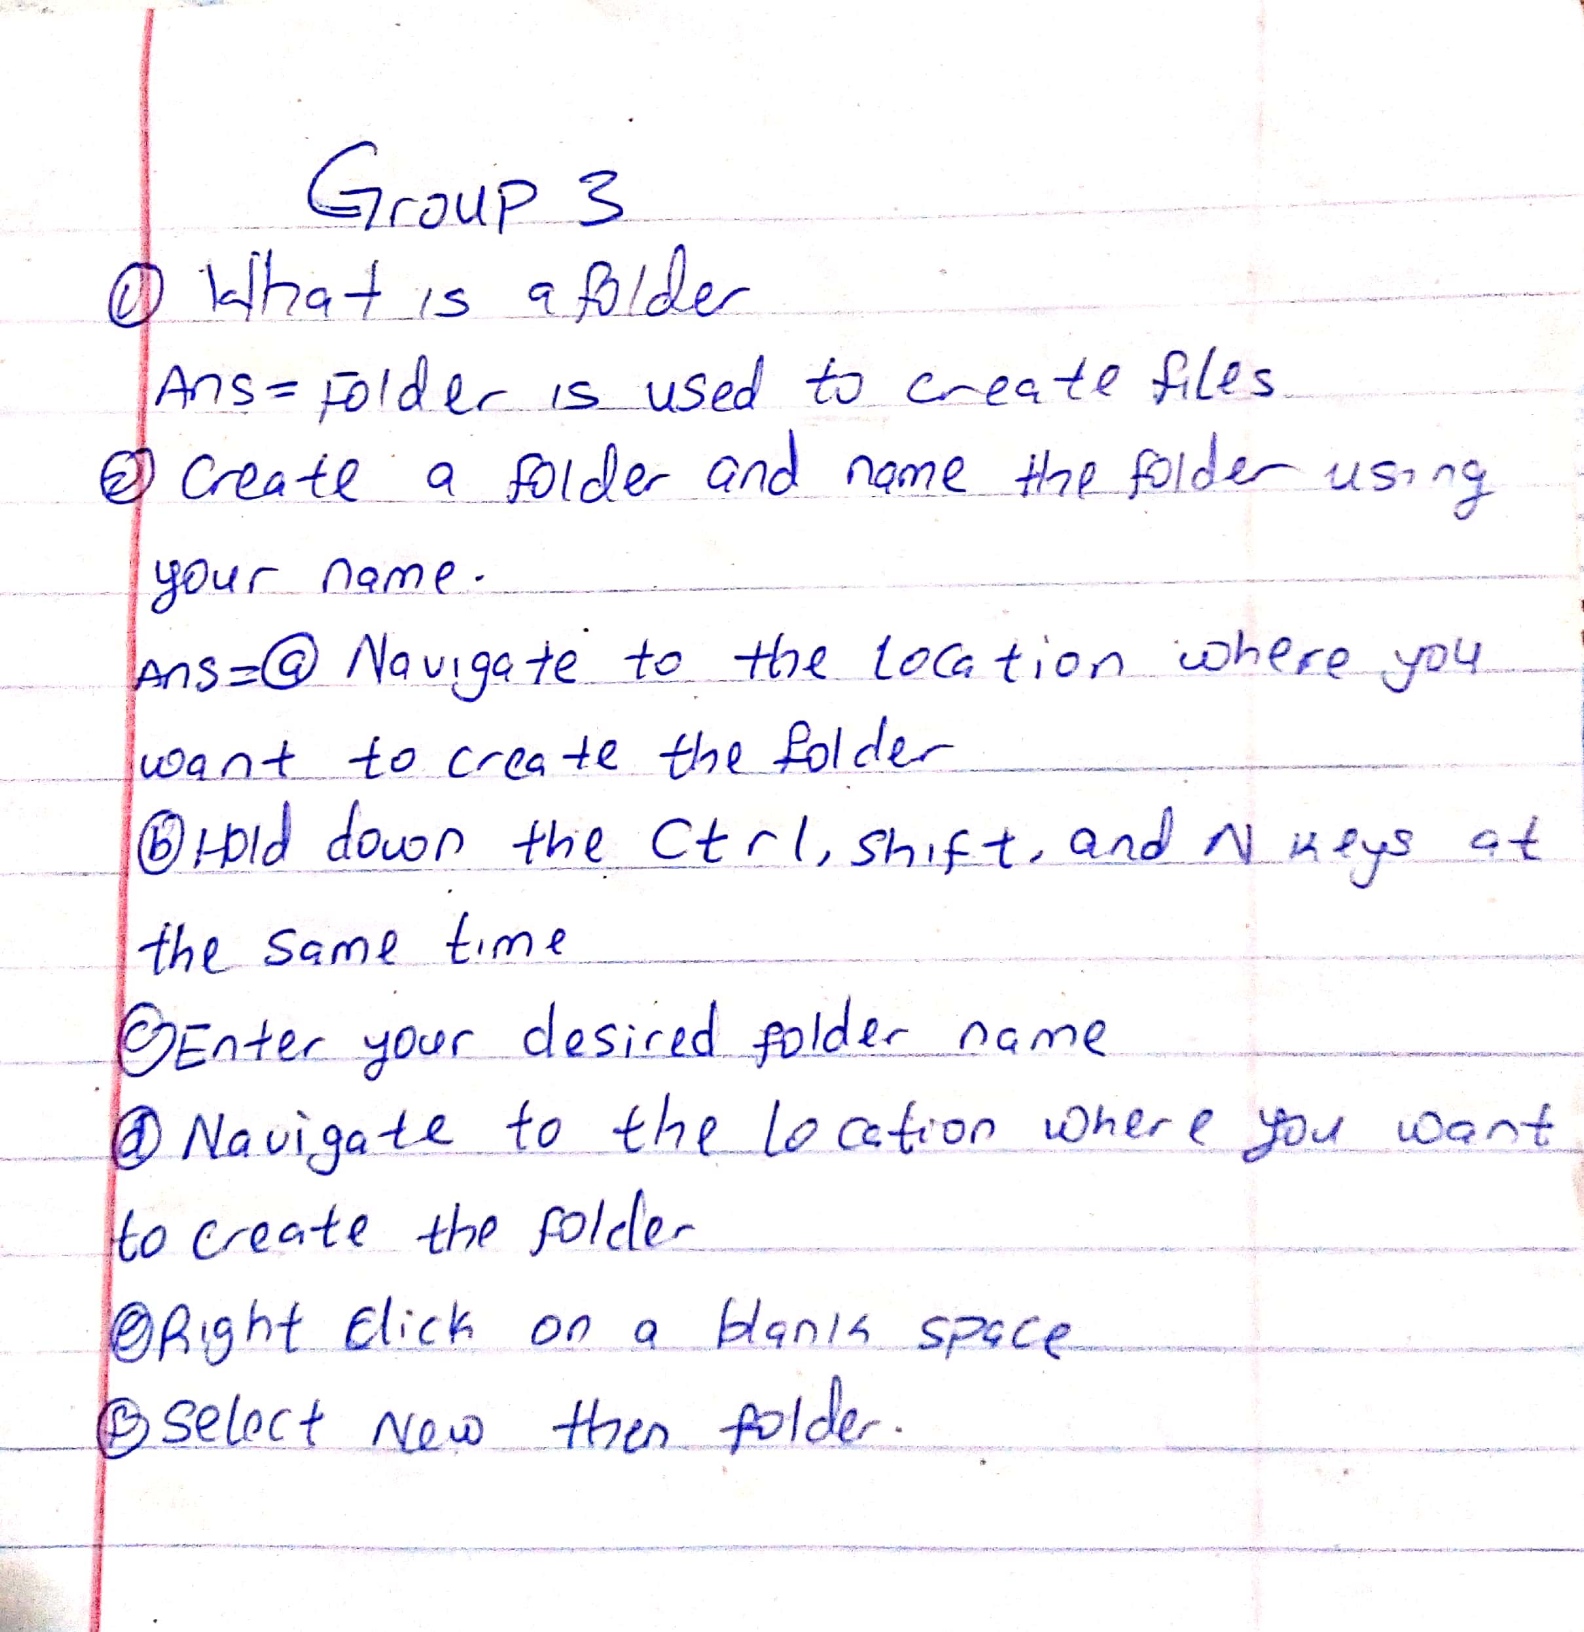 Group 3
① What is a folder
Ans = Folder is used to create files
② Create a folder and name the folder using
your name.
Ans = ⓐ Navigate to the location where you
want to create the folder
ⓑ Hold down the Ctrl, shift, and N keys at
the same time
ⓒ Enter your desired folder name
ⓓ Navigate to the location where you want
to create the folder
ⓔ Right click on a blank space
ⓕ Select New then folder.